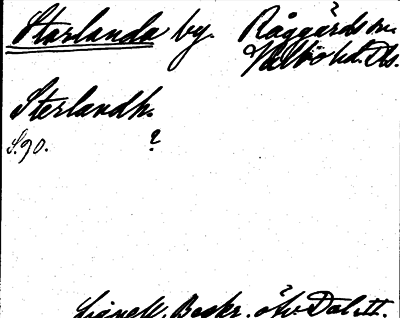 Starlanda by. Råggärds sn.
Valbo hd. Ds.
Sterlandh.
S. 90. ?
Lignell, Beskr. öfv. Dal. II.